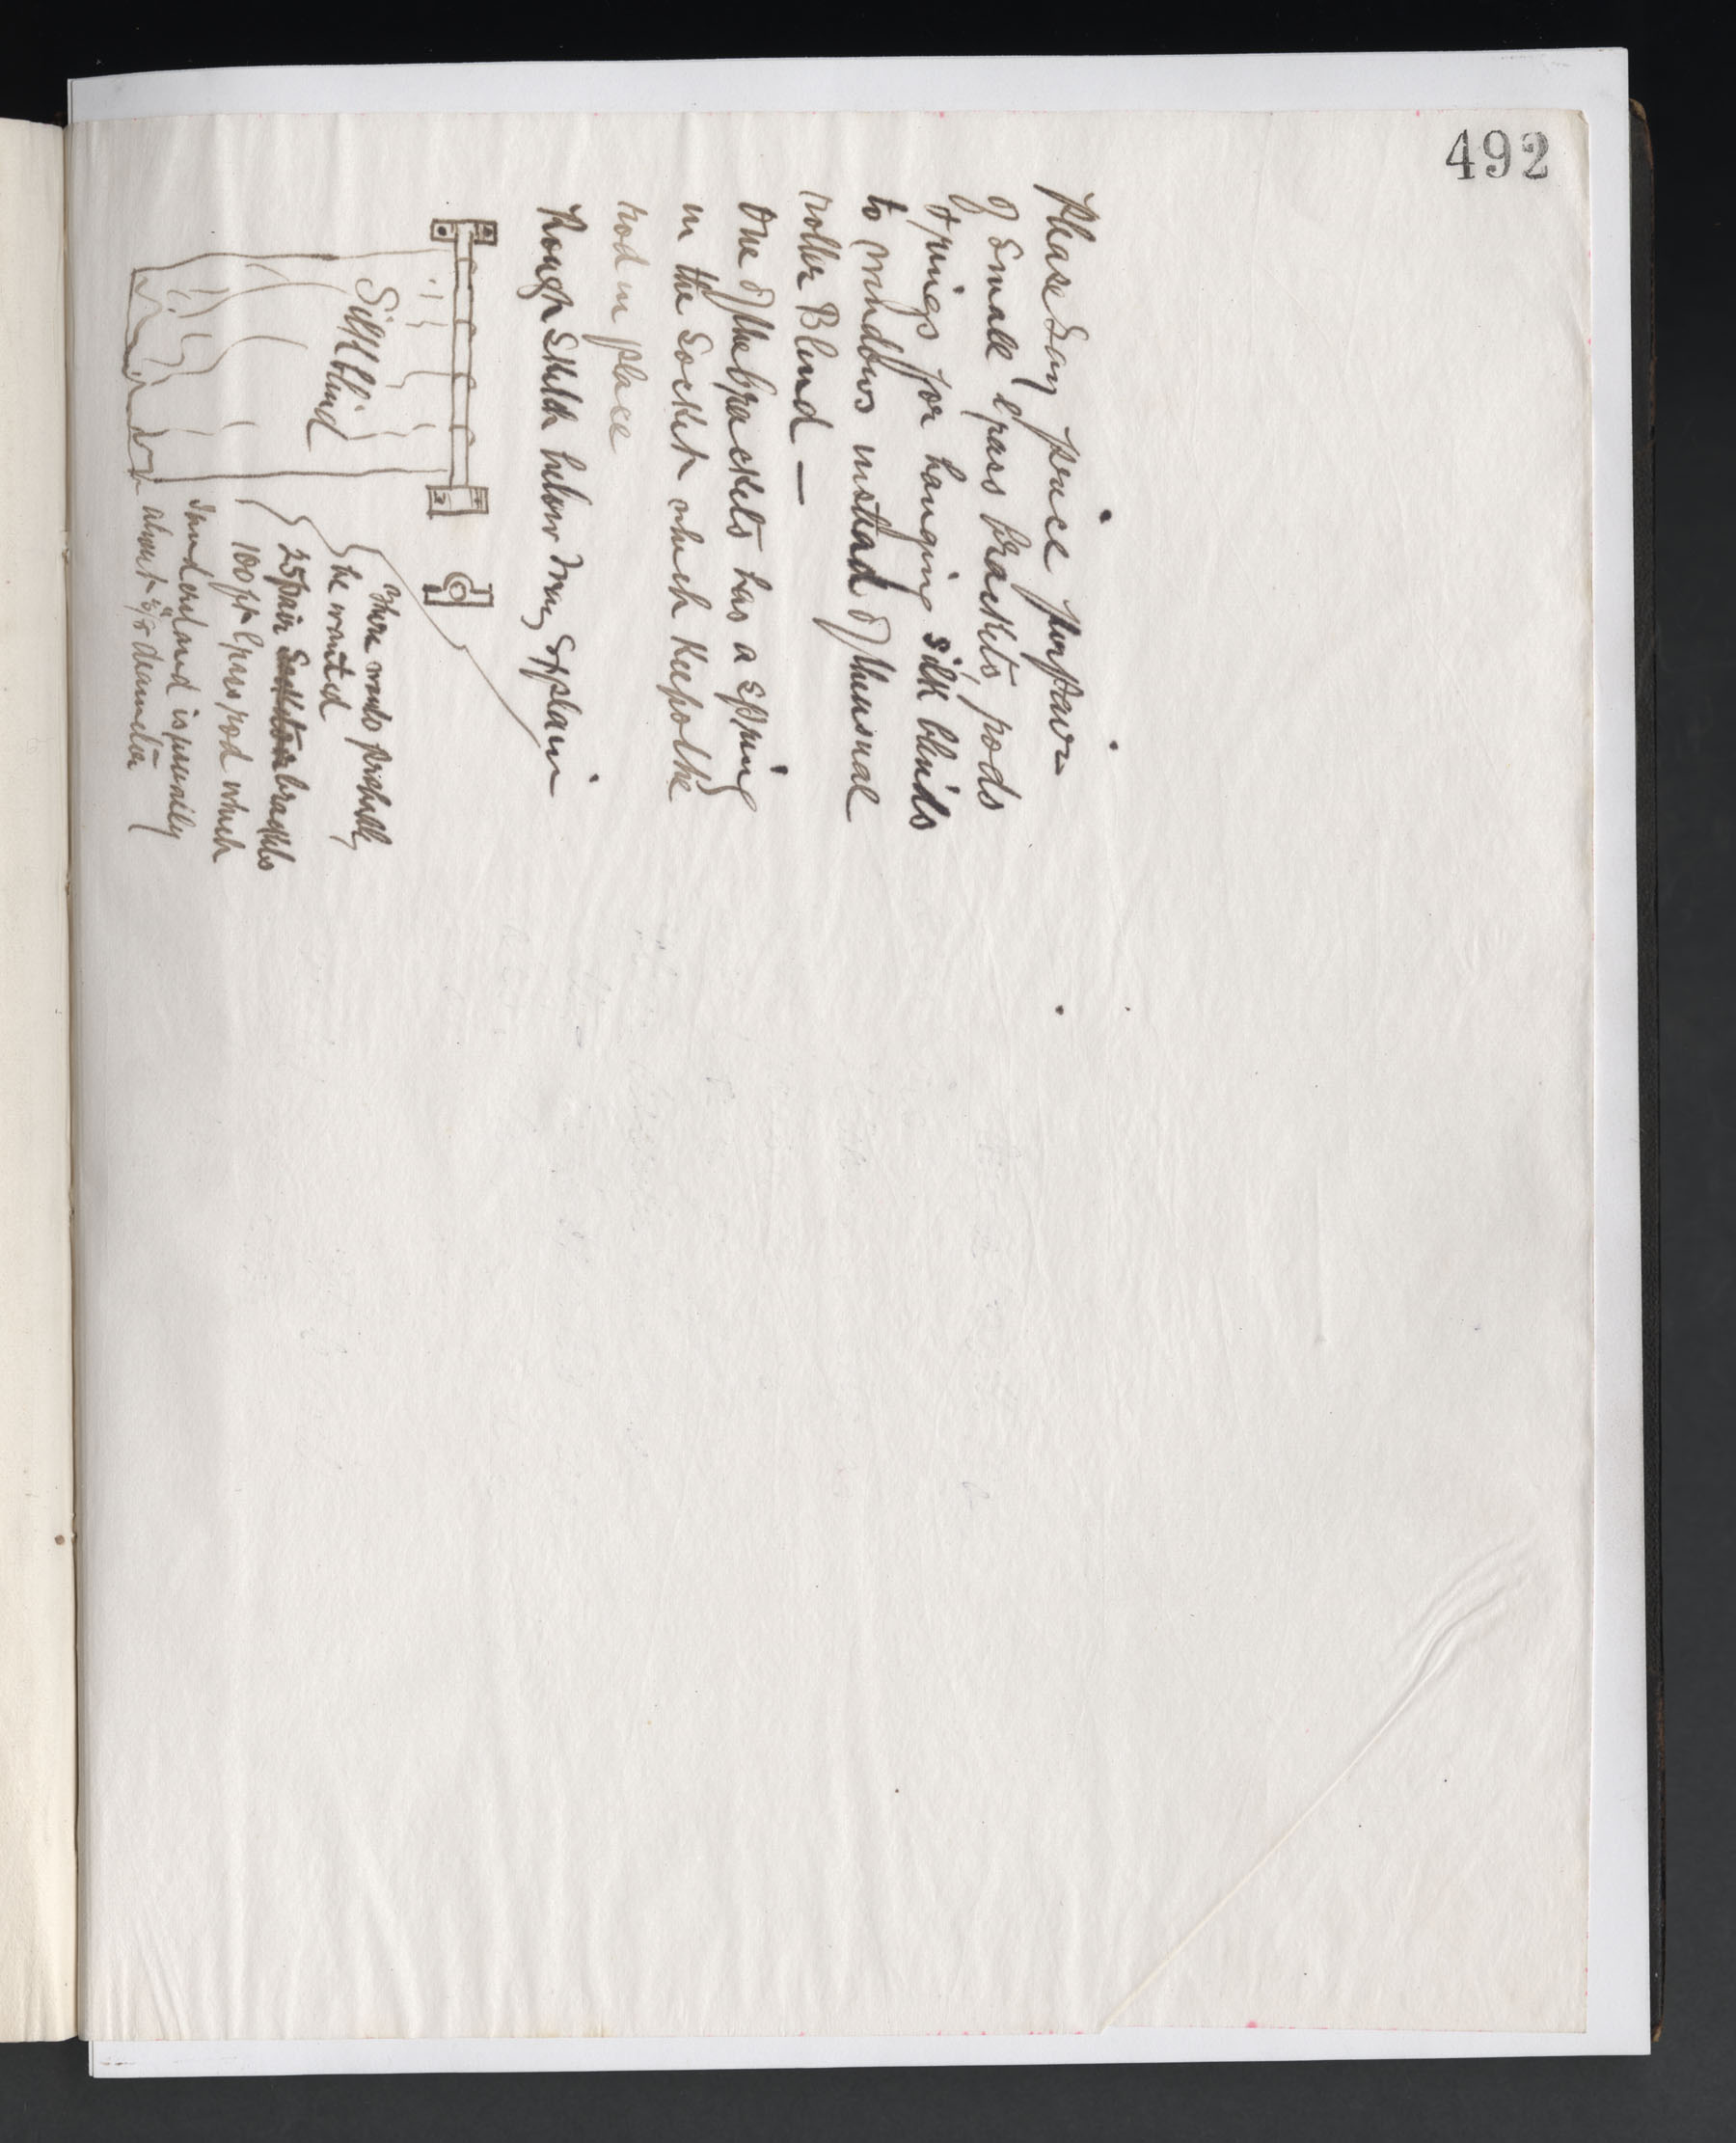 492
Please Say price per pair
of Small brass brackets, rods
& springs for hanging silk blinds
to windows instead of the usual
roller Blind —
One of the brackets has a spring
in the Socket which Keeps the
rod in place
Rough Sketch below may Explain
Silk blind
There would probably
be wanted
25 pair brackets
100 ft brass rod which
I understand is usually
about 3/8 diameter